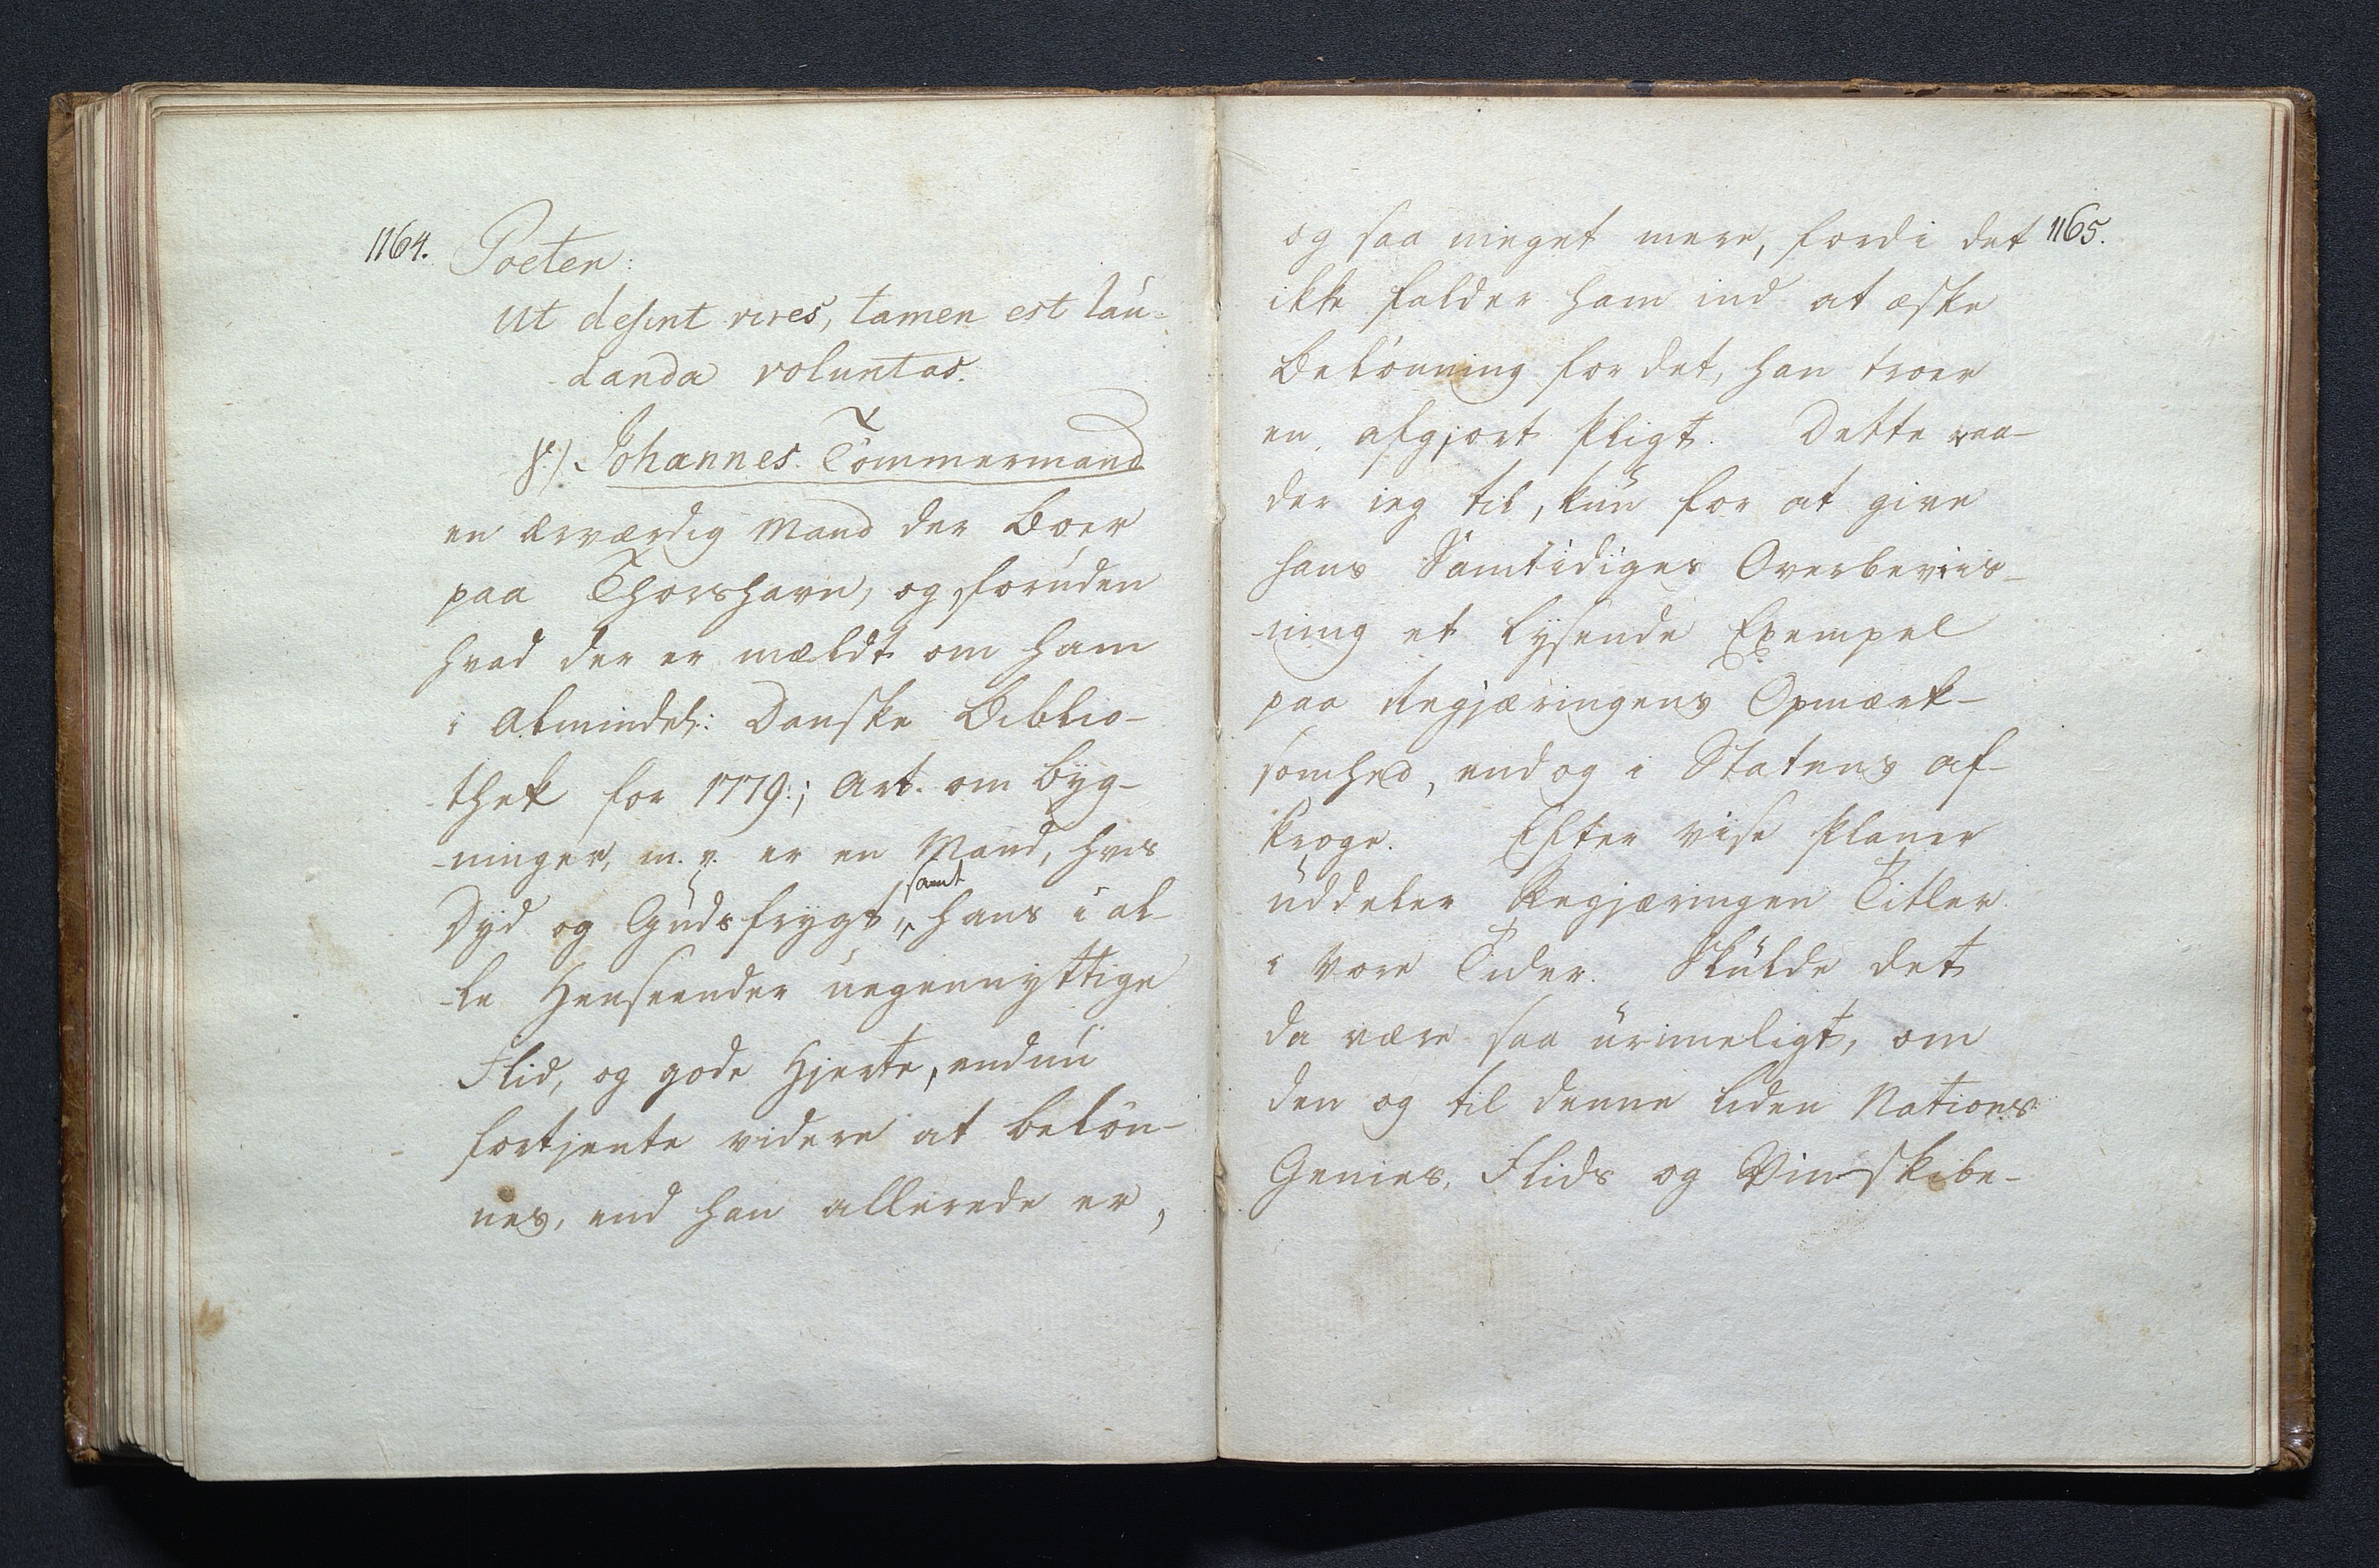 1164.
Poeten:
Ut desint vires, tamen est lau-
danda voluntas.
8.) Johannes Tömmermand
en ærværdig Mand der Boer
paa Thorshavn, og foruden
hvad der er mældt om ham
i Almindel: Danske Biblio-
thek for 1779:; Art. om Byg-
-ninger, m. v. er en Mand, hvis
samt
Dyd og Gudsfrygt, hans i al-
-le Henseender uegennyttige
Flid, og gode Hjerte, endnu
fortjente videre at belön-
nes, end han allerede er,
1165.
og saa meget mere, fordi det
ikke falder ham ind at æske
Belönning for det, han troer
en afgjort Pligt. Dette raa-
der ieg til, kun for at give
hans Samtidiges Overbeviis-
-ning et lysende Exempel
paa Regjæringens Opmærk-
somhed, endog i Statens af-
kroge. Efter vise Planer
uddeler Regjæringen Titler
i vore Tider. Skulde det
da være saa urimeligt, om
den og til denne liden Nations
Genies, Flids og Vinskibe-